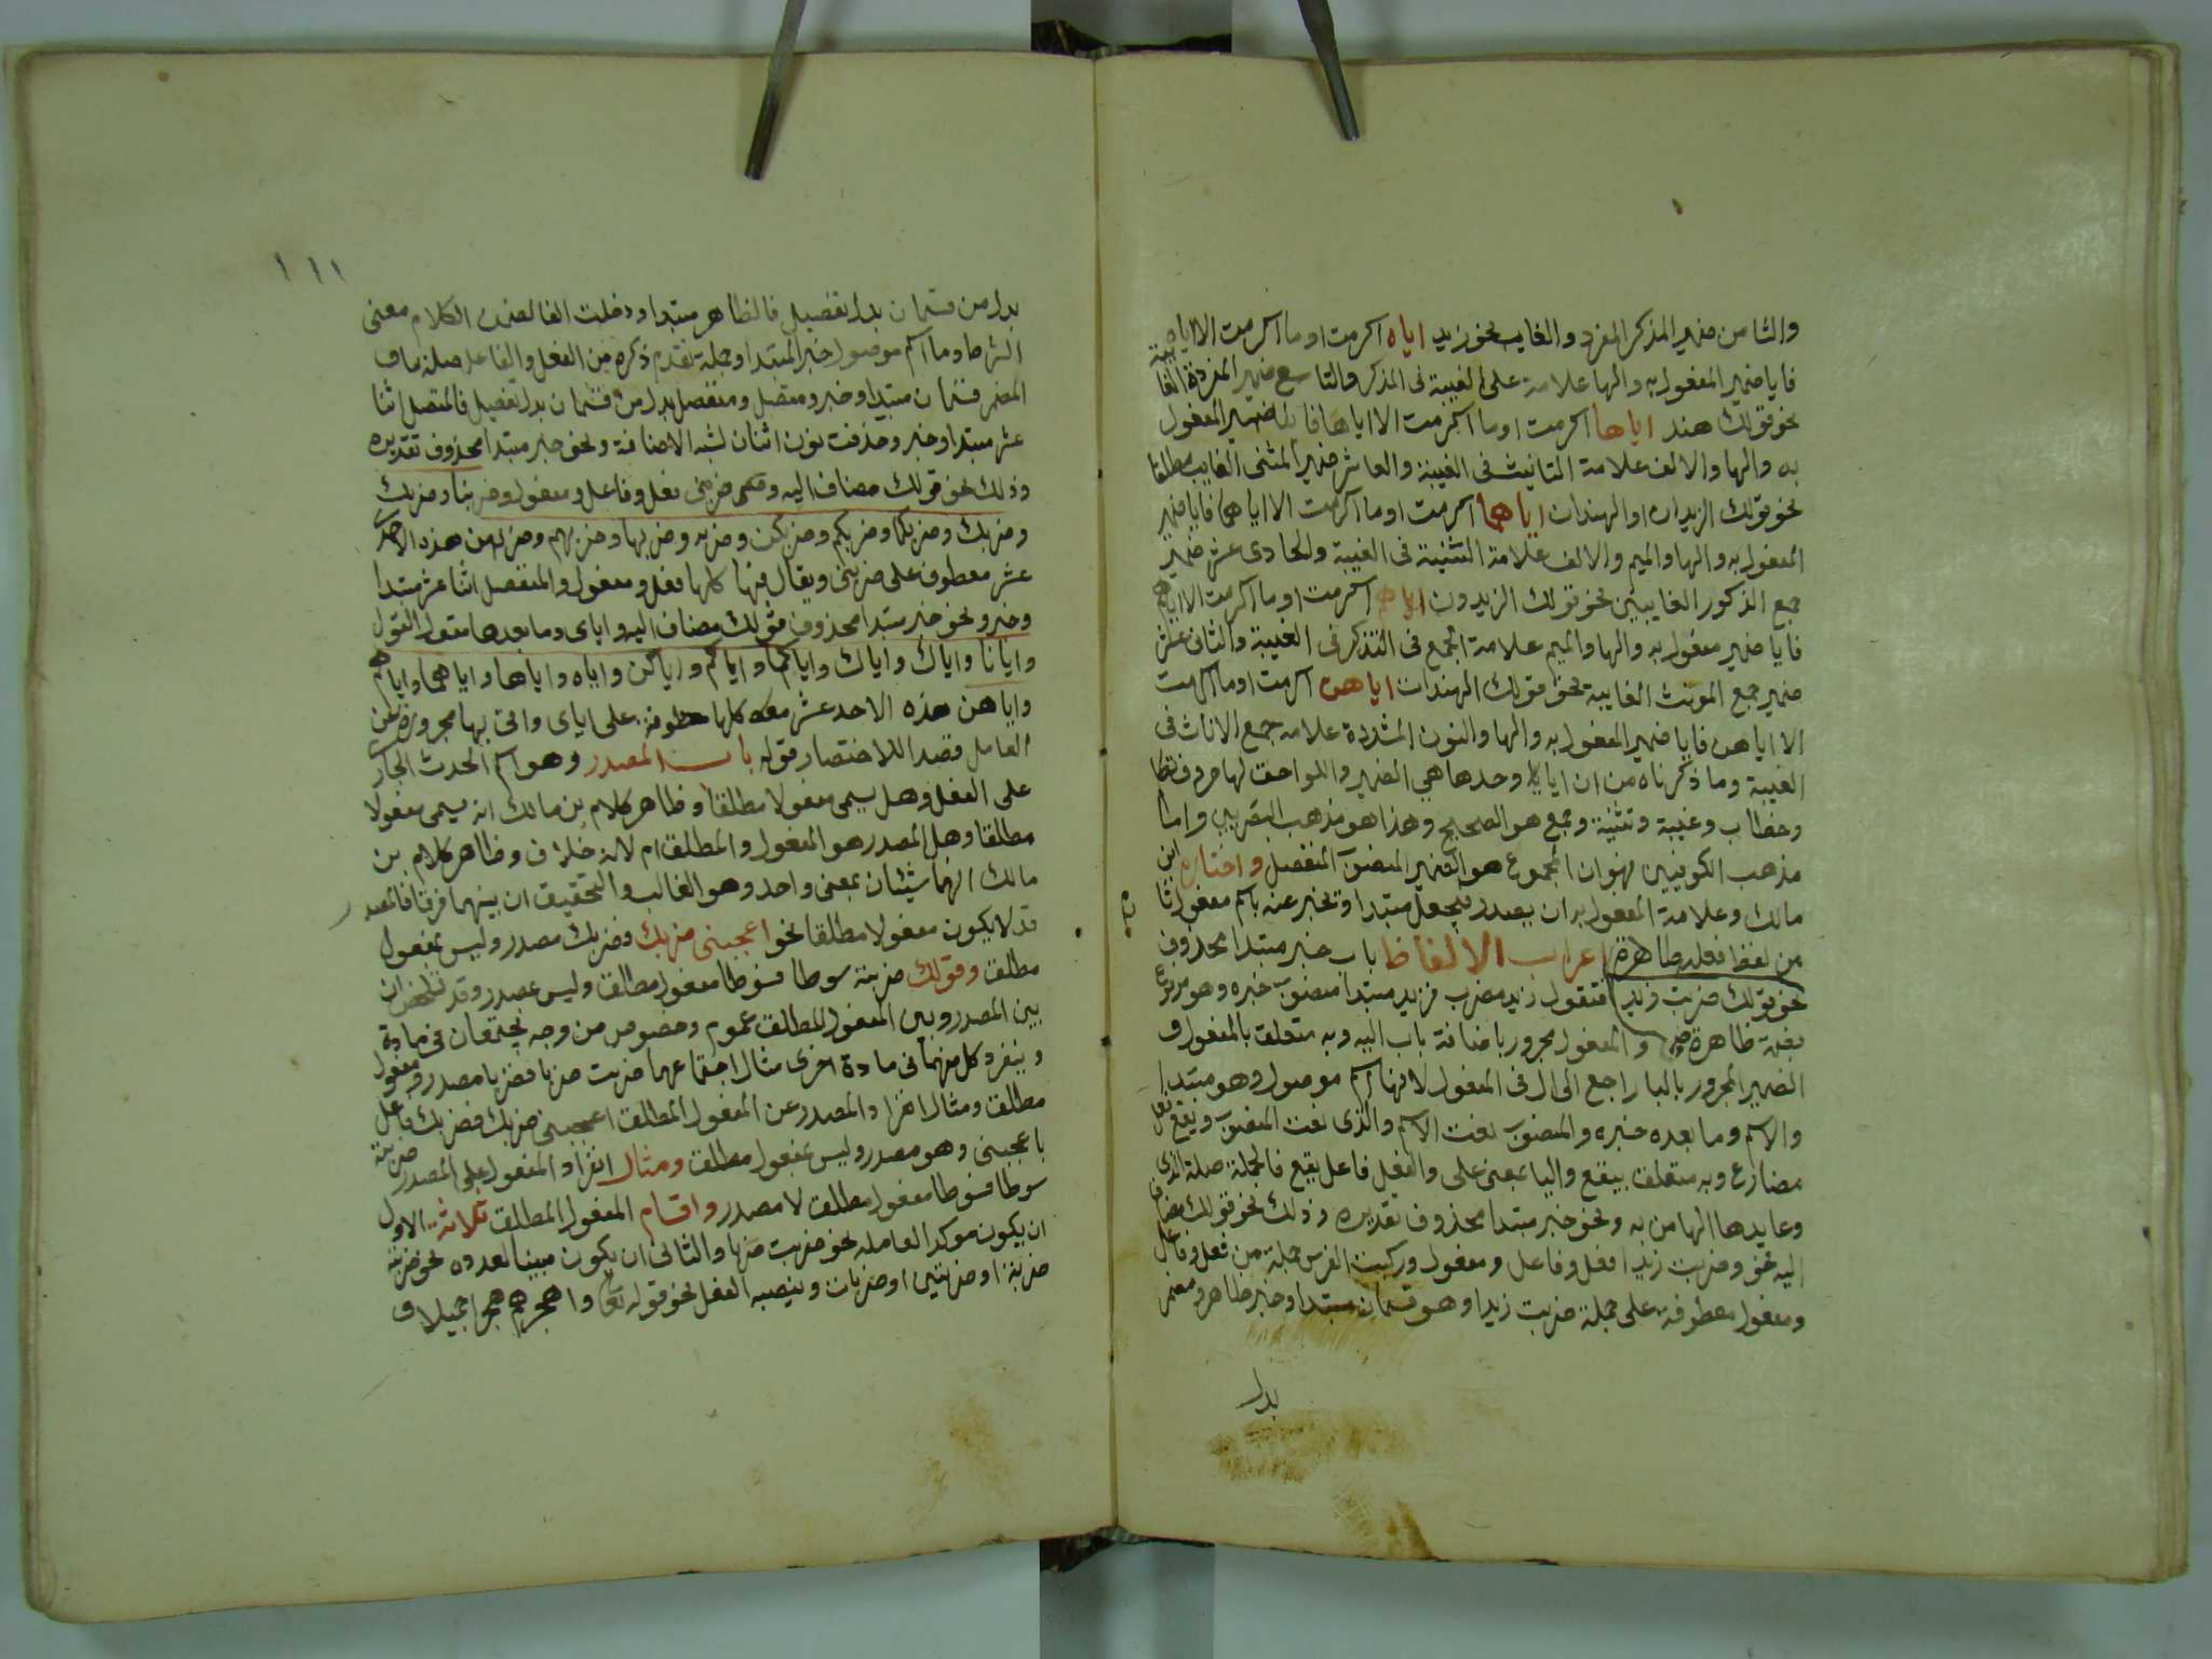 والثامن ضمير المذكر المفرد والغايب نحو زيد اياه اكرمت او ما اكرمت الا اياه
فايا ضمير المفعول به والها علامة على الغيبة فى المذكر والتاسع ضمير المفردة الغايبة
نحو قولك هند اياها اكرمت او ما اكرمت الا اياها فايا ضمير المفعول
به والها والالف علامة التانيث فى الغيبة والعاشر ضمير المثنى الغايب مطلقا
نحو قولك الزيدان او الهندان اياهما اكرمت او ما اكرمت الا اياهما فايا ضمير
المفعول به والها والميم والالف علامة التثنية فى الغيبة والحادى عشر ضمير
جمع الذكور الغايبين نحو قولك الزيدون اياهم اكرمت او ما اكرمت الا اياهم
فايا ضمير مفعول به والها والميم علامة الجمع فى التذكر فى الغيبة والثانى عشر
ضمير جمع المونث الغايبة نحو قولك الهندات اياهن اكرمت او ما اكرمت
الا اياهن فايا ضمير المفعول به والها والنون المشددة علامة جمع الاناث فى
الغيبة وما ذكرناه من ان ايا وحدها هي الضمير واللواحق لها حروف تكلم
وخطاب وغيبة وتثنية وجمع هو الصحيح وهذا هو مذهب البصريين واما
مذهب الكوفيين فهو ان المجموع هو الضمير المنصوب المنفصل واختاره ابن
مالك وعلامة المفعول به ان يصدر فيجعل مبتدا وتخبر عنه باسم مفعول تام
من لفظ فعله ظاهرة اعراب الالفاظ باب خبر مبتدا محذوف
نحو قولك ضربت زيدا فتقول زيد مضرب فزيد مبتدا منصوب خبره وهو مرفوع
بضمة ظاهرة والمفعول مجرور باضافة باب اليه وبه متعلق بالمفعول و
الضمير المجرور بالبا راجع الى ال فى المفعول لانها اسم موصول وهو مبتدا
والاسم وما بعده خبره والمنصوب نعت الاسم والذى نعت المنصوب ويقع فعل
مضارع وبه متعلق بيقع واليا بمعنى على والفعل فاعل يقع فالجملة صلة الذى
وعايدها الها من به ونحو خبر مبتدا محذوف تقديره وذلك نحو قولك مضاف
اليه نحو وضربت زيدا فعل وفاعل ومفعول وركبت الفرس جملة من فعل وفاعل
ومفعول معطوفة على جملة ضربت زيدا وهو قسمان مبتدا وخبر ظاهر ومضمر
بدل
١١١
بدل من قسمان بدل تفصيل فالظاهر مبتدا ودخلت الفا الكلام معنى
الشرط وما اسم موصول خبر المبتدا وجملة تقدم ذكره من الفعل والفاعل صلة ما و
المضمر قسمان مبتدا وخبر ومتصل ومنفصل بدل من قسمان بدل تفصيل فالمتصل اثنا
عشر مبتدا وخبر وحذفت نون اثنان لشبه الاضافة ونحو خبر مبتدا محذوف تقديره
وذلك نحو قولك مضاف اليه ضربنى فعل وفاعل ومفعول وضربنا وضربك
وضربك وضربكما وضربكم وضربكن وضربه وضربها وضربهم وضربهن هذه الاحدى
عشر معطوف على ضربنى ويقال فيها كلها فعل ومفعول والمنفصل اثنا عشر مبتدا
وخبر ونحو خبر مبتدا محذوف قولك مضاف اليه واياى وما بعدها مقول القول
وايانا واياك واياك واياكما واياكم واياكن واياه واياها واياهما واياهم
واياهن هذه الاحد عشر كلها معطوفة على اياى واتى بها مجرورة عن
العامل قصدا للاختصار قوله باب المصدر وهو اسم الحدث الجارى
على الفعل وهل يسمى مفعولا مطلقا وظاهر كلام بن مالك انه يسمى مفعولا
مطلقا وهل المصدر هو المفعول والمطلق ام لانه خلاف وظاهر كلام بن
مالك انهما شيئان بمعنى واحد وهو الغالب والتحقيق ان بينهما فرقا فالمصدر
قد لا يكون مفعولا مطلقا نحو اعجبنى ضربك فضربك مصدر وليس بمفعول
مطلق وقولك ضربته سوطا فسوطا مفعول مطلق وليس بمصدر وقد تلخص ان
بين المصدر وبين المفعول المطلق عموم وخصوص من وجه يجتمعان فى مادة
وينفرد كل منهما فى مادة اخرى مثال اجتماعهما ضربت ضربا فضربا مصدر ومفعول
مطلق ومثال انفراد المصدر عن المفعول المطلق اعجبنى ضربك فضربك فاعل
باعجبنى وهو مصدر وليس بمفعول مطلق ومثال انفراد المفعول على المصدر ضربته
سوطا فسوطا مفعول مطلق لا مصدر واقسام المفعول المطلق ثلاثة الاول
ان يكون موكدا لعامله نحو ضربت ضربا والثانى ان يكون مبينا لعدده نحو ضربته
ضربة او ضربتين او ضربات وينصبه الفعل نحو قوله تعالى واهجرهم هجرا جميلا و